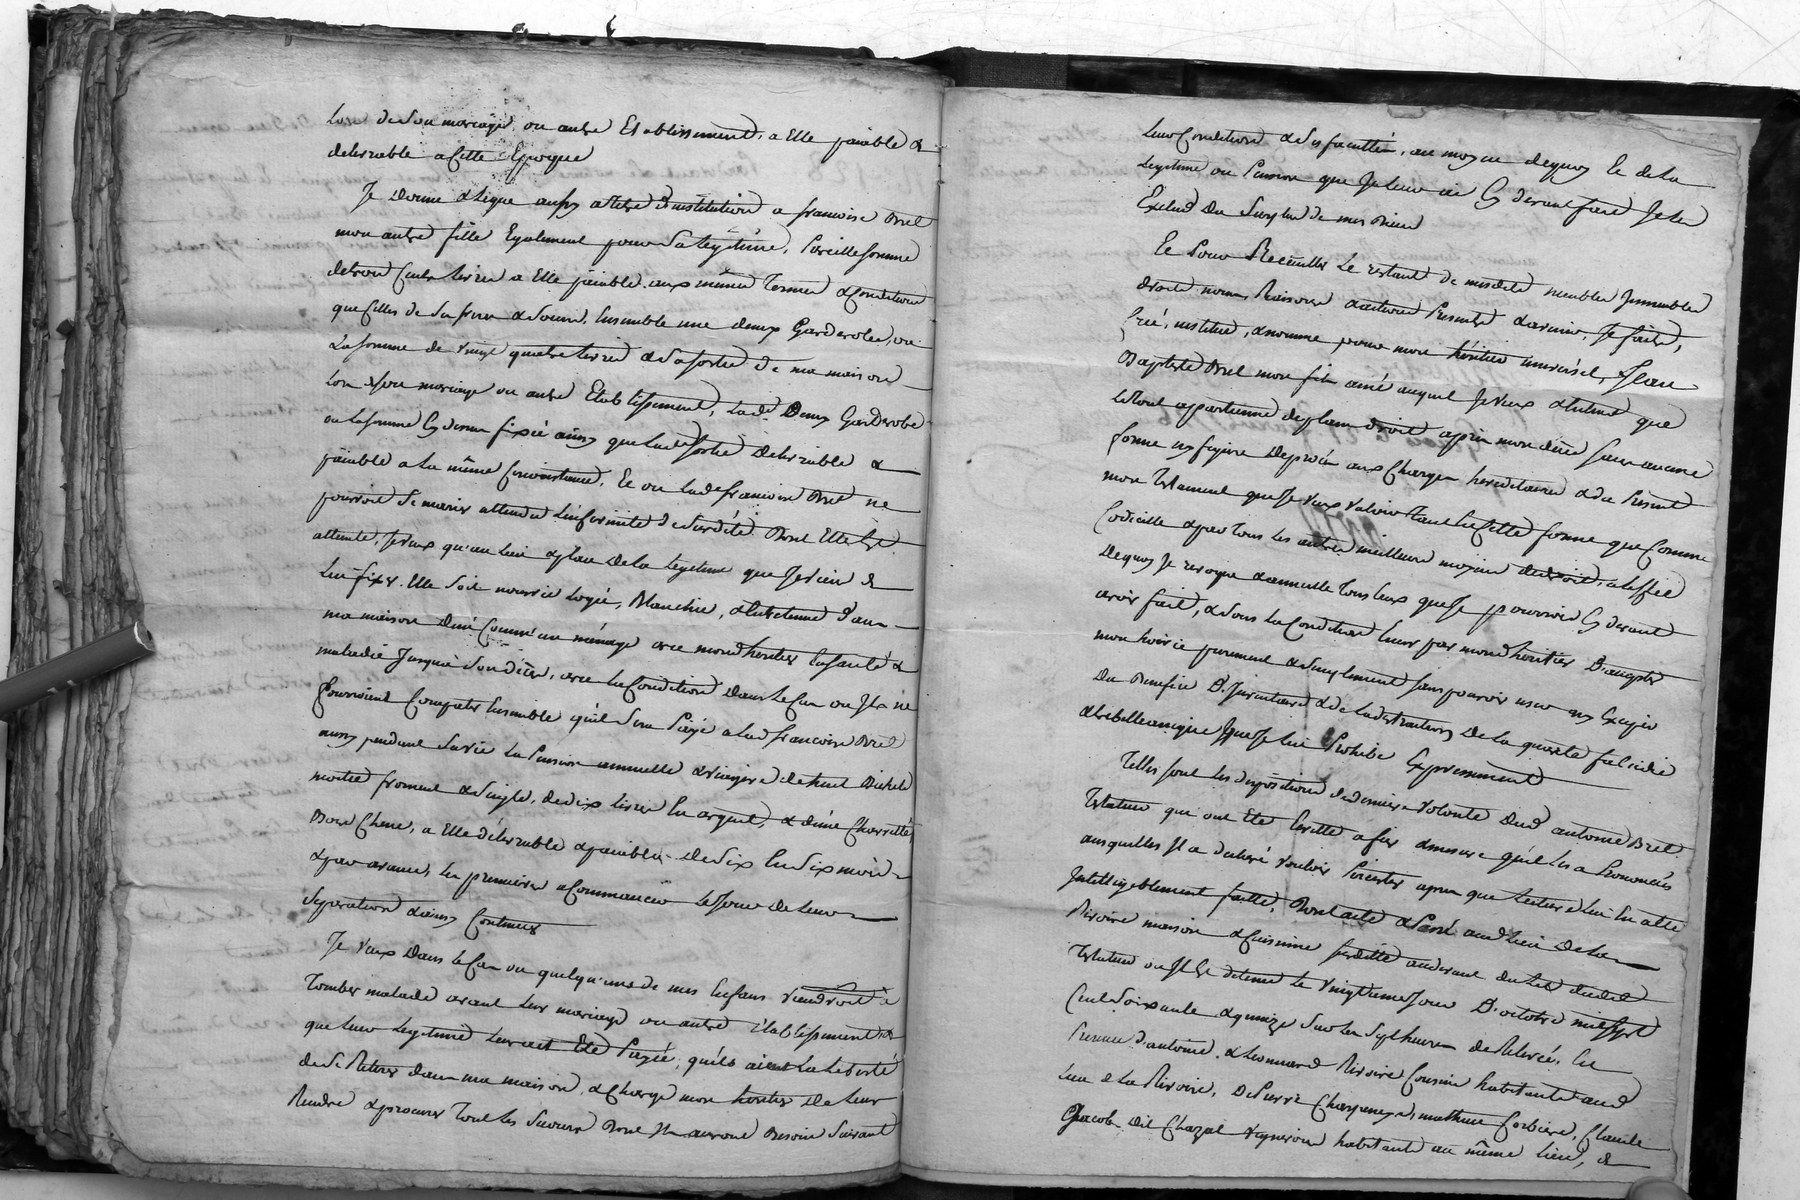 lors de son mariage ou autre Etablissement, a Elle païable &
delivrable a Cette Epoque
Je donne & legue aussy a titre d'institution a francoise Brel
mon autre fille Egalement pour sa legitime, pareille somme
de trois Cents livres a Elle païable aux mêmes Termes & Conditions
que Celles de sa soeur Ensemble une deux Garderobes, ou
La somme de vingt quatre livres a sa sortie de ma maison
lors de son mariage ou autre Etablissement, lad Deux Garderobe
ou la somme Cy devant fixée ainsy que lad sortie Delivrable &
païable a la même Circonstance, Et ou lade francoise Brel ne
pourroit se marier attendu L'infirmité de surdité Dont Elle Est
atteinte, Je veux qu'au lieu & place de la legitime que Je viens de
lui fixer, Elle soit nourrie logée, Blanchie, & Entretenue dans
ma maison & mê Comm'un ménage avec mond heritier En santé &
maladie Jusqu'a son décès, avec la Condition Dans le Cas ou Ils ne
pourroient Compatir Ensemble qu'il sera Payé a lad francoise Brel
aussy pendant sa vie la Pension annuelle & viagere de huit Bichets
moitié froment & seigle, de dix livres En argent, & d'une Charretée
Bois Chene, a Elle délivrable & païable de six En six mois
& par avance, les premiers a Commancer le Jour de leur
séparation & ainsy Continuer
Je veux Dans le Cas ou quelqu'uns de mes Enfans viendroit a
Tomber malade avant leur mariage ou autre établissement &
que leur legitime leur ait Eté Payée, qu'ils aient la liberté
de se Retirer dans ma maison, & Charge mon heritier de leur
Rendre & procurer Tout les secours Dont Ils auront Besoin suivant
leur Condition & ses facultés, au moyen dequoy Et de la
legitime ou Pension que Je leur ai Cy devant faite Je les
Exclud Du surplus de mes Biens
Et Pour Recueillir le restant de mesdits meubles Immeubles
droits noms Raisons & actions Presents & avenir, Je faits,
Créé, institue, & nomme pour mon héritier universel, Jean
Baptiste Brel mon fils ainé auquel Je veux & Entend que
le tout appartienne de plein droit après mon décès sans aucune
forme ny figure De procès aux Charges hereditaires & du Present
mon testament que Je veux valoir Tant En Cette forme que Comme
Codicille & par tous les autres meilleurs moyens de droit, a l'effet
Dequoy Je revoque & annulle Tous Ceux que Je pourrois Cy devant
avoir fait, & sous la Condition Encor par mond heritier D'accepter
mon hoirie purement & simplement sans pouvoir user ny Exciper
Du Benefice D'Inventaire & de la detraction De la quarte falcidie
& trebellianique que Je lui Prohibe Expressement
Telles sont les dispositions de derniere volonté Dud antoine Brel
Testateur qui ont Eté Ecrittes a fur & mesure qu'il les a Prononcées
auxquelles Il a declaré vouloir Persister après que lecture a lui En a Eté
Intelligiblement faitte, Dont acte & Passé aud lieu de la
Rivoire maison & Cuisine susditte audevant du lit dudit
Testateur ou Il Est detenu le vingtieme Jour D'octobre mil sept
Cent soixante & quinze sur les sept heures de Relevée, En
Presence d'antoine & Leonnard Rivoire Cousins habitants aud
lieu de la Rivoire, De Pierre Charpenet, mathieu Corbiere, Claude
Jacob Dit Chazal vignerons habitants au même lieu, &